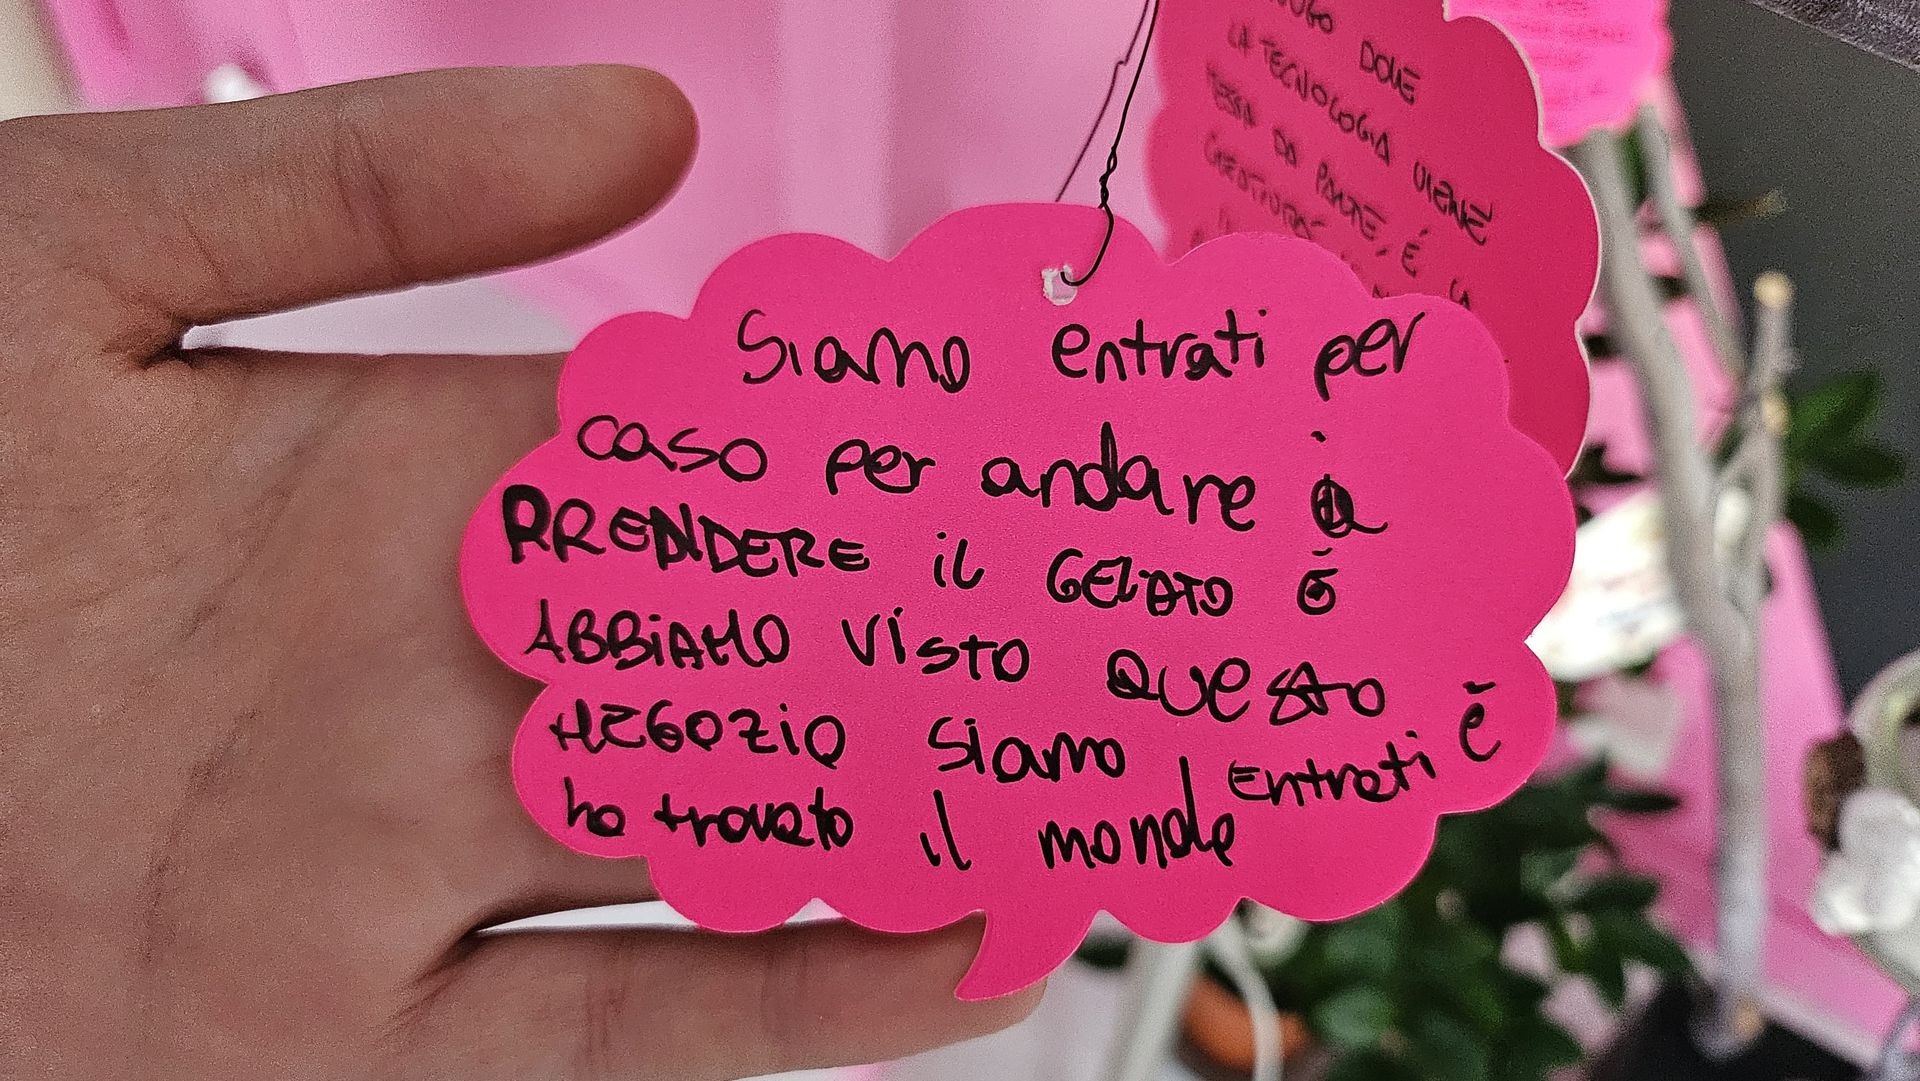 Siamo entrati per
caso per andare a
PRENDERE il GELATO e
ABBIAMO Visto QUESTO
NEGOZIO Siamo Entrati è
ho trovato il monde
DOVE
LA TECNOLOGIA VIENE
MESSA DA PARTE, É LA